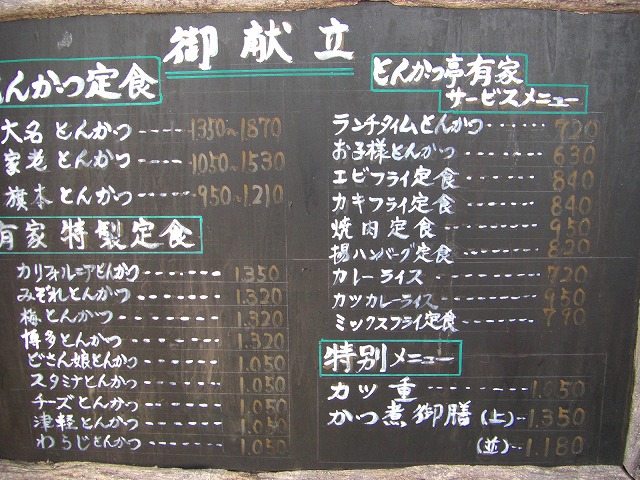 御献立
とんかつ定食
大名とんかつ-----1350~1870
家老とんかつ----1050~1530
旗本とんかつ-----950~1210
有家 特製定食
カリフォルニアとんかつ-------1.350
みぞれとんかつ-------1.320
梅とんかつ-------1.320
博多とんかつ-------1.320
どさん娘とんかつ-------1.050
スタミナとんかつ-------1.050
チーズとんかつ-------1.050
津軽とんかつ-------1.050
わらじとんかつ-------1.050
とんかつ亭有家
サービスメニュー
ランチタイムとんかつ------720
お子様とんかつ--------630
エビフライ定食--------840
カキフライ定食--------840
焼肉定食--------950
揚ハンバーグ定食------820
カレーライス--------720
カツカレーライス------950
ミックスフライ定食-----790
特別メニュー
カツ重---------1.050
かつ煮御膳(上)--1.350
(並)--1.180